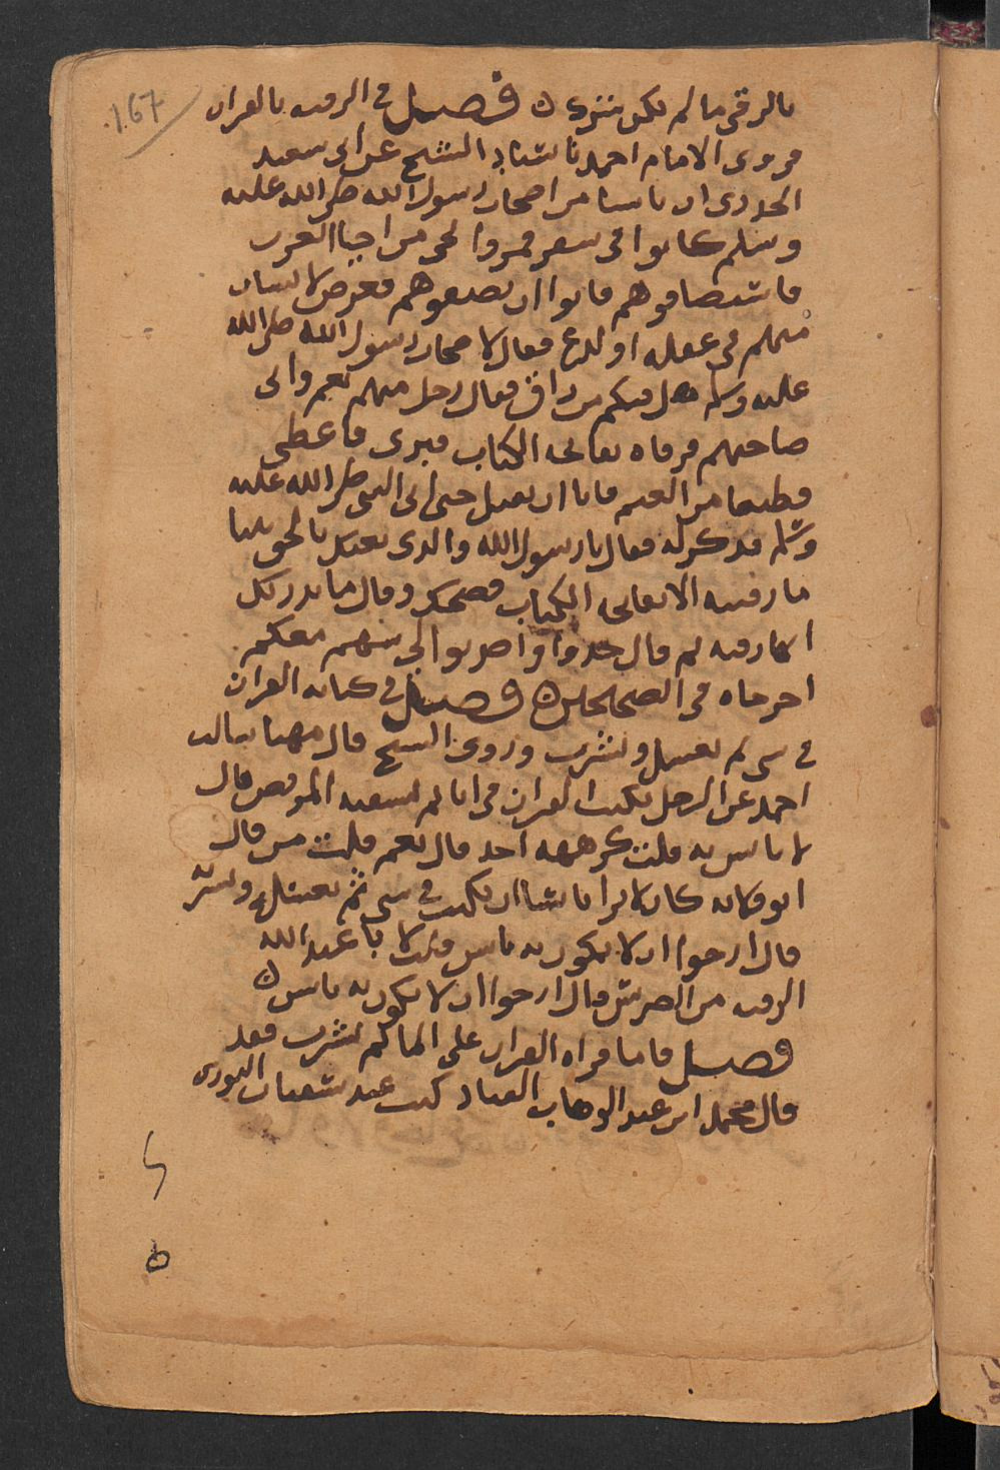 167
بالرقى ما لم يكن شرك ن فصل في الرقيه بالقران
فروى الامام احمد باسناد الشيخ عن ابى سعيد
الخدرى ان ناسا من اصحاب رسول الله صلى الله عليه
وسلم كانوا فى سفر فمروا بحى من احيا العرب
فاستضافوهم فابوا ان يضيفوهم فعرض لانسان
منهم فى عقله او لدغ فقال لاصحاب رسول الله صلى الله
عليه وسلم هل فيكم من راق فقال رجل منهم نعم واتى
صاحبهم فرقاه بفاتحه الكتاب فبرى فاعطى
قطيعا من الغنم فابا ان يقبل حتى اتى النبى صلى الله عليه
وسلم فذكر له فقال يا رسول الله والذى بعثك بالحق نبيا
ما رقيته الا بفاتحه الكتاب فضحك وقال ما يدريك
انها رقيه ثم قال خذوا واضربوا لى بسهم معكم
اخرجاه فى الصحيحين ن فصل في كتابه القران
في شى ثم يغسل ويشرب وروى الشيخ قال مهنا سالت
احمد عن الرجل يكتب القران فى انا ثم يسقيه المريض قال
لا باس به قلت كرهه احد قال نعم قلت من قال
ابو قلابه كان لا يرا باسا ان يكتب في شى ثم يغسل ويشربه
قال ارجوا ان لا يكون به باس قلت لا با عبد الله
الرقيه من الضرس قال ارجوا ان لا يكون به باس ن
فصل فاما قراه القران على الما ثم يشرب فقد
قال محمد ابن عبد الوهاب العباد كنت عند سفيان الثورى